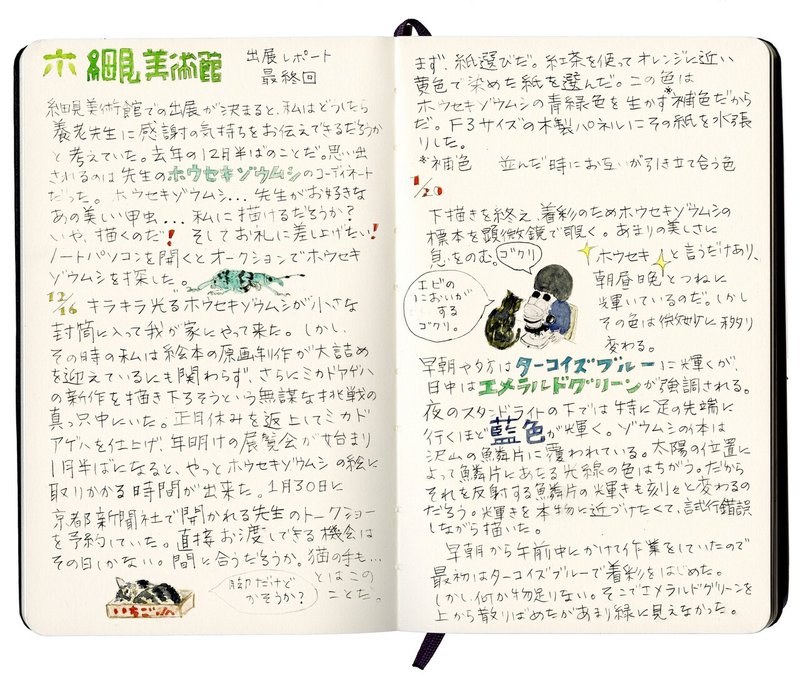 ホ 細見美術館
出展レポート
最終回
細見美術館での出展が決まると、私はどうしたら
養老先生に感謝の気持ちをお伝えできるだろうか
と考えていた。去年の12月半ばのことだ。思い出
されるのは先生のホウセキゾウムシのコーディネート
だった。ホウセキゾウムシ...先生がお好きな
あの美しい甲虫...私に描けるだろうか?
いや、描くのだ! そしてお礼に差し上げたい!
ノートパソコンを開くとオークションでホウセキ
ゾウムシを探した。
12/16 キラキラ光るホウセキゾウムシが小さな
封筒に入って我が家にやって来た。しかし、
その時の私は絵本の原画制作が大詰め
を迎えているにも関わらず、さらにミカドアゲハ
の新作を描き下ろそうという無謀な挑戦の
真っ只中にいた。正月休みを返上してミカド
アゲハを仕上げ、年明けの展覧会が始まり
1月半ばになると、やっとホウセキゾウムシの絵に
取りかかる時間が出来た。1月30日に
京都新聞社で開かれる先生のトークショー
を予約していた。直接お渡しできる機会は
その日しかない。間に合うだろうか。猫の手も...
とはこの
ことだ。
脚だけど
かそうか?
いちご
まず、紙選びだ。紅茶を使ってオレンジに近い
黄色で染めた紙を選んだ。この色は
ホウセキゾウムシの青緑色を生かす*補色だから
だ。F3サイズの木製パネルにその紙を水張
りした。
*補色 並んだ時にお互いが引き立て合う色
1/20
下描きを終え、着彩のためホウセキゾウムシの
標本を顕微鏡で覗く。あまりの美しさに
息をのむ。
ゴクリ
エビの
においが
する
ゴクリ。
ホウセキと言うだけあり、
朝昼晩とつねに
輝いているのだ。しかし
その色は微妙に移り
変わる。
早朝や夕方はターコイズブルーに輝くが、
日中はエメラルドグリーンが強調される。
夜のスタンドライトの下では特に足の先端に
行くほど藍色が輝く。ゾウムシの体は
沢山の鱗片に覆われている。太陽の位置に
よって鱗片にあたる光線の色はちがう。だから
それを反射する鱗片の輝きも刻々と変わるの
だろう。輝きを本物に近づけたくて、試行錯誤
しながら描いた。
早朝から午前中にかけて作業をしていたので
最初はターコイズブルーで着彩をはじめた。
しかし、何か物足りない。そこでエメラルドグリーンを
上から散りばめたがあまり緑に見えなかった。